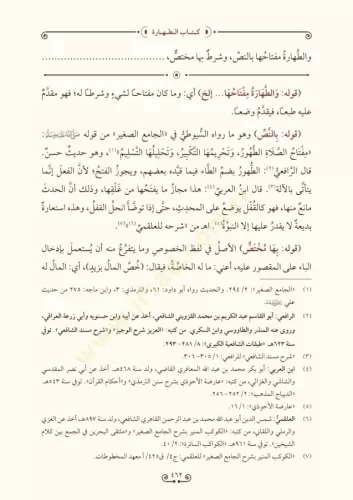 كتاب الطهارة
والطَّهارةُ مفتاحُها بالنصِّ، وشرطٌ بها مختصٌّ، ......................................
(قوله: وَالطَّهَارَةُ مِفْتَاحُهَا... إلخ) أي: وما كان مفتاحاً لشيءٍ وشرطاً له؛ فهو مقدَّمٌ
عليه طبعاً، فيقدَّمُ وضعاً.
(قوله: بِالنَّصِّ) وهو ما رواه السُّيوطيُّ في «الجامع الصغير» من قوله ﷺ:
«مِفْتَاحُ الصَّلَاةِ الطُّهُورُ، وَتَحْرِيمُهَا التَّكْبِيرُ، وَتَحْلِيلُهَا التَّسْلِيمُ»(١)، وهو حديثٌ حسنٌ.
قال الرَّافعيُّ(٢): الطُّهورُ بضمِّ الطَّاء، فيما قيَّده بعضهم، ويجوزُ الفتحُ؛ لأنَّ الفعلَ إنَّما
يتأتَّى بالآلة(٣). قال ابنُ العربيِّ(٤): هذا مجازُ ما يفتحُها من غَلْقِها، وذلك أنَّ الحدثَ
مانعٌ منها، فهو كالقُفْلِ يوضعُ على المحدِثِ، حتَّى إذا توضَّأ انحلَّ القفلُ، وهذه استعارةٌ
بديعةٌ لا يقدرُ عليها إلا النبوَّةُ(٥). اهـ من «شرحه» للعلقمي(٦)(٧).
(قوله: بِهَا مُخْتَصٌّ) الأصلُ في لفظ الخصوص وما يتفرَّعُ منه أن يُستعملَ بإدخال
الباء على المقصور عليه، أعني: ما له الخاصَّةُ، فيقال: (خُصَّ المالُ بزيدٍ)، أي: المال له
(١) «الجامع الصغير»: ٢/ ٢٩٤. والحديث رواه أبو داود: ٦١، والترمذي: ٣، وابن ماجه: ٢٧٥ من حديث
علي
(٢) الرافعي: أبو القاسم عبد الكريم بن محمد القزويني الشافعي، أخذ عن أبيه وابن حسنويه وأبي زرعة العراقي،
وروى عنه المنذر والطاووسي وابن السكري. من كتبه: «العزيز شرح الوجيز» و«شرح مسند الشافعي». توفي
سنة ٦٢٣هـ. «طبقات الشافعية الكبرى»: ٨/ ٢٨١-٢٩٣.
(٣) «شرح مسند الشافعي» للرافعي: ١/ ٣٠٥-٣٠٦.
(٤) ابن العربي: أبو بكر محمد بن عبد الله المعافري القاضي، ولد سنة ٤٦٨هـ، أخذ عن أبي نصر المقدسي
والشاشي والغزالي، من كتبه: «عارضة الأحوذي بشرح سنن الترمذي» و«أحكام القرآن». توفي سنة ٥٤٣هـ.
«الديباج المذهب»: ٢/ ٢٥٢-٢٥٦.
(٥) «عارضة الأحوذي»: ١/ ١٦.
(٦) العلقمي: شمس الدين أبو عبد الله محمد بن عبد الرحمن القاهري الشافعي، ولد سنة ٨٩٧هـ، أخذ عن الغزي
والرملي واللقاني، من كتبه: «الكوكب المنير بشرح الجامع الصغير» و«ملتقى البحرين في الجمع بين كلام
الشيخين». توفي سنة ٩٦١هـ. «الكواكب السائرة»: ٢/ ٤٠.
(٧) «الكوكب المنير بشرح الجامع الصغير» للعلقمي: ج٤/ ق٤٢٥/ أ معهد المخطوطات.
٤٦٢